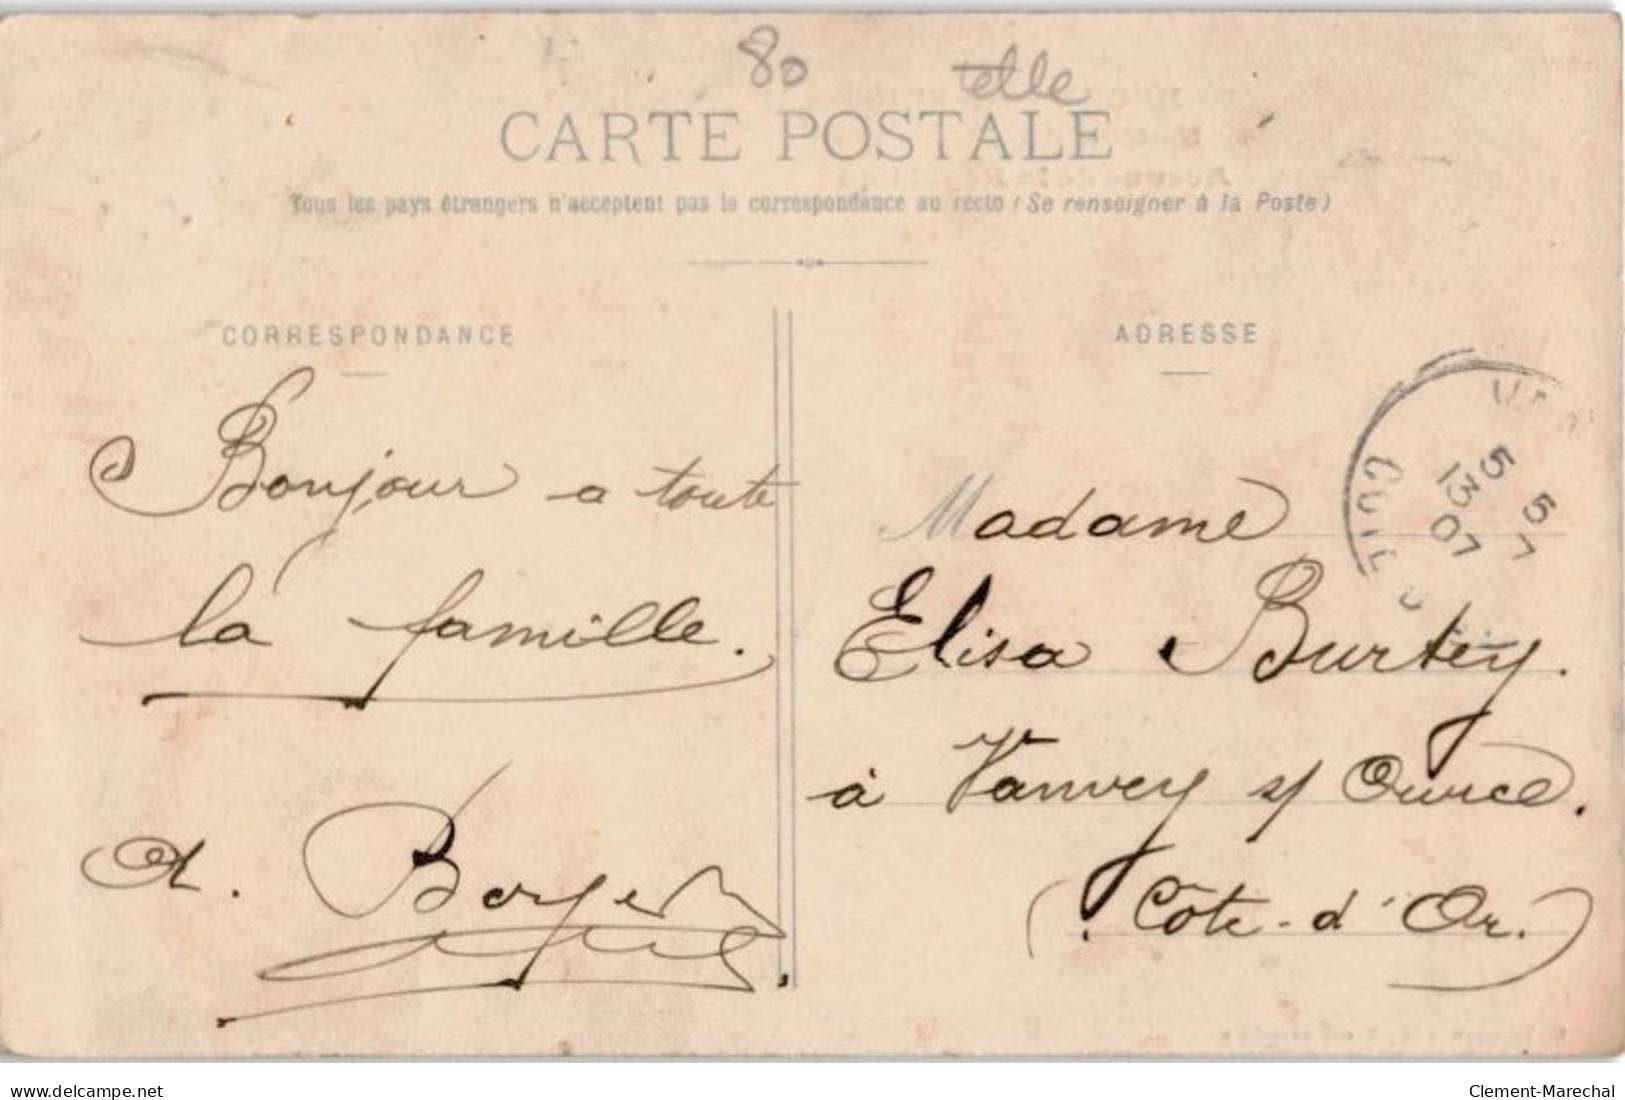 80
telle
CARTE POSTALE
Tous les pays étrangers n'acceptent pas la correspondance au recto (Se renseigner à la Poste)
CORRESPONDANCE
Bonjour a toute
la famille.
A. Boyer
ADRESSE
5 5
13 7
07
Madame
Elisa Burtey.
à Vanvey s/ Ource.
(Côte-d'Or.)
delcampe.net
Clement-Marechal